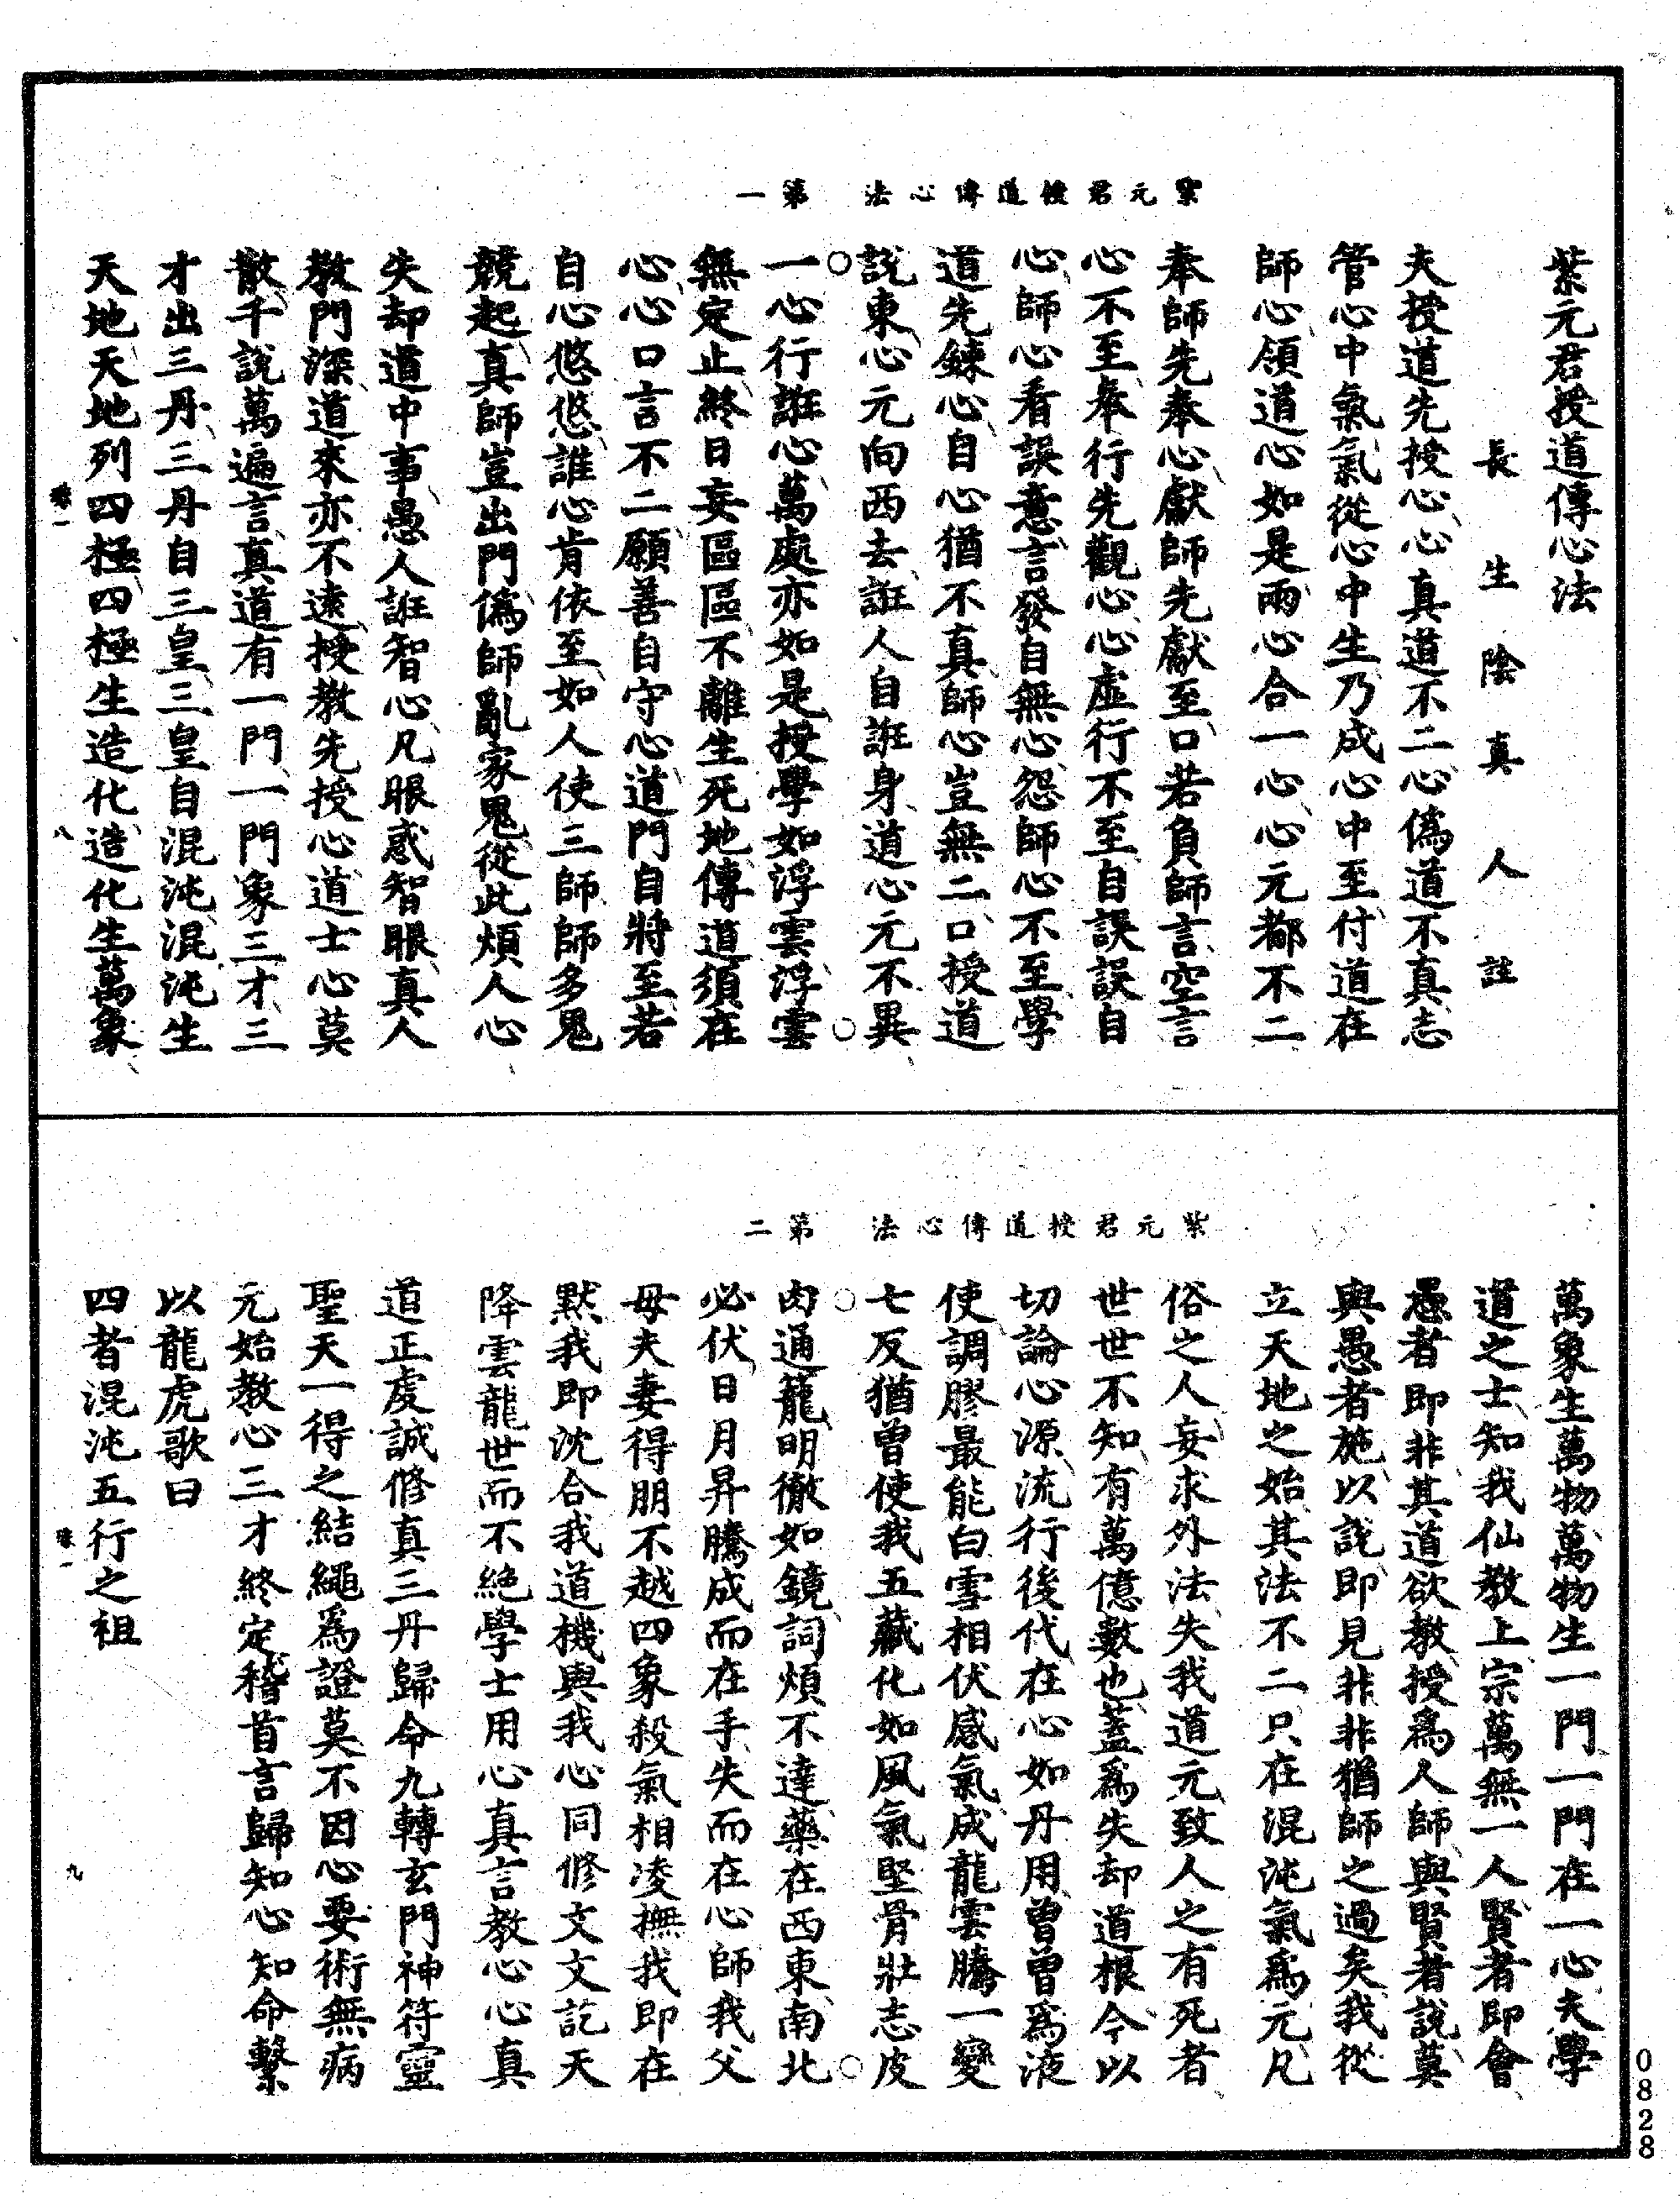 紫元君授道傳心法　第一
紫元君授道傳心法
長生陰真人註
夫授道先授心心真道不二心偽道不真志
管心中氣氣從心中生乃成心中至付道在
師心領道心如是兩心合一心心元都不二
奉師先奉心獻師先獻至口若負師言空言
心不至奉行先觀心心虛行不至自誤誤自
心師心看誤意言發自無心怨師心不至學
道先鍊心自心猶不真師心豈無二口授道
說東心元向西去誑人自誑身道心元不異
一心行誑心萬處亦如是授學如浮雲浮雲
無定止終日妄區區不離生死地傳道須在
心心口言不二願善自守心道門自將至若
自心悠悠誰心肯依至如人使三師師多鬼
競起真師豈出門偽師亂家鬼從此煩人心
失却道中事愚人誑智心凡眼惑智眼真人
教門深道來亦不遠授教先授心道士心莫
散千說萬遍言真道有一門一門象三才三
才出三丹三丹自三皇三皇自混沌混沌生
天地天地列四極四極生造化造化生萬象
八
紫元君授道傳心法　第二
萬象生萬物萬物生一門一門在一心夫學
道之士知我仙教上宗萬無一人賢者即會
愚者即非其道欲教授爲人師與賢者說莫
與愚者施以說即見非非猶師之過矣我從
立天地之始其法不二只在混沌氣爲元凡
俗之人妄求外法失我道元致人之有死者
世世不知有萬億數也蓋爲失却道根今以
切論心源流行後代在心如丹用曾曾爲液
使調膠最能白雪相伏感氣成龍雲騰一變
七反猶曾使我五藏化如風氣堅骨壯志皮
肉通籠明徹如鏡詞煩不達藥在西東南北
必伏日月昇騰成而在手失而在心師我父
母夫妻得朋不越四象殺氣相凌撫我即在
默我即沈合我道機與我心同修文文訖天
降雲龍世而不絕學士用心真言教心心真
道正虔誠修真三丹歸命九轉玄門神符靈
聖天一得之結繩爲證莫不因心要術無病
元始教心三才終定稽首言歸知心知命繫
以龍虎歌曰
四者混沌五行之祖
九
0828